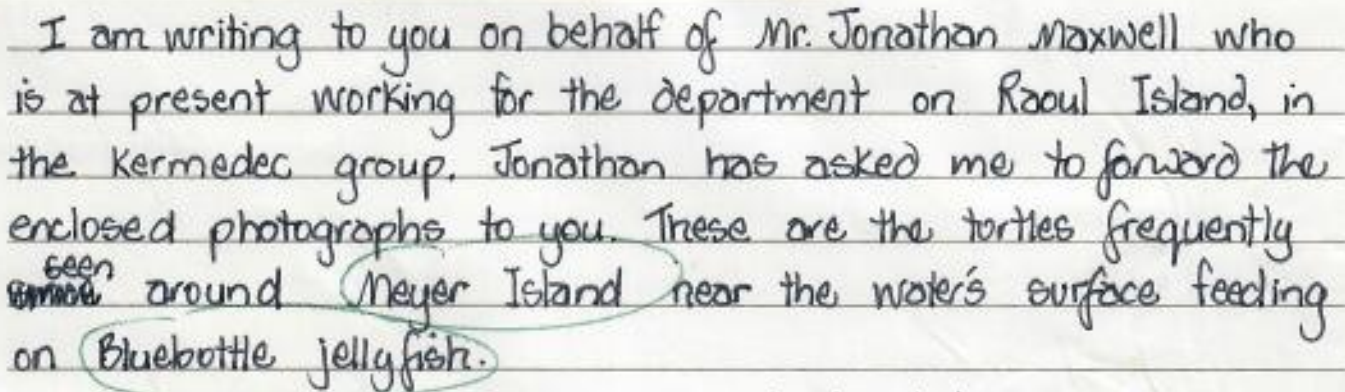 I am writing to you on behalf of Mr. Jonathan Maxwell who
is at present working for the department on Raoul Island, in
the Kermedec group. Jonathan has asked me to forward the
enclosed photographs to you. These are the tortles frequently
seen around Meyer Island near the water's surface feeding
on Bluebottle jellyfish.